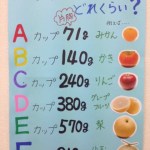 どれくらい?
A カップ 71g みかん
B カップ 140g かき
C カップ 240g りんご
D カップ 380g グレープフルーツ
E カップ 570g 梨